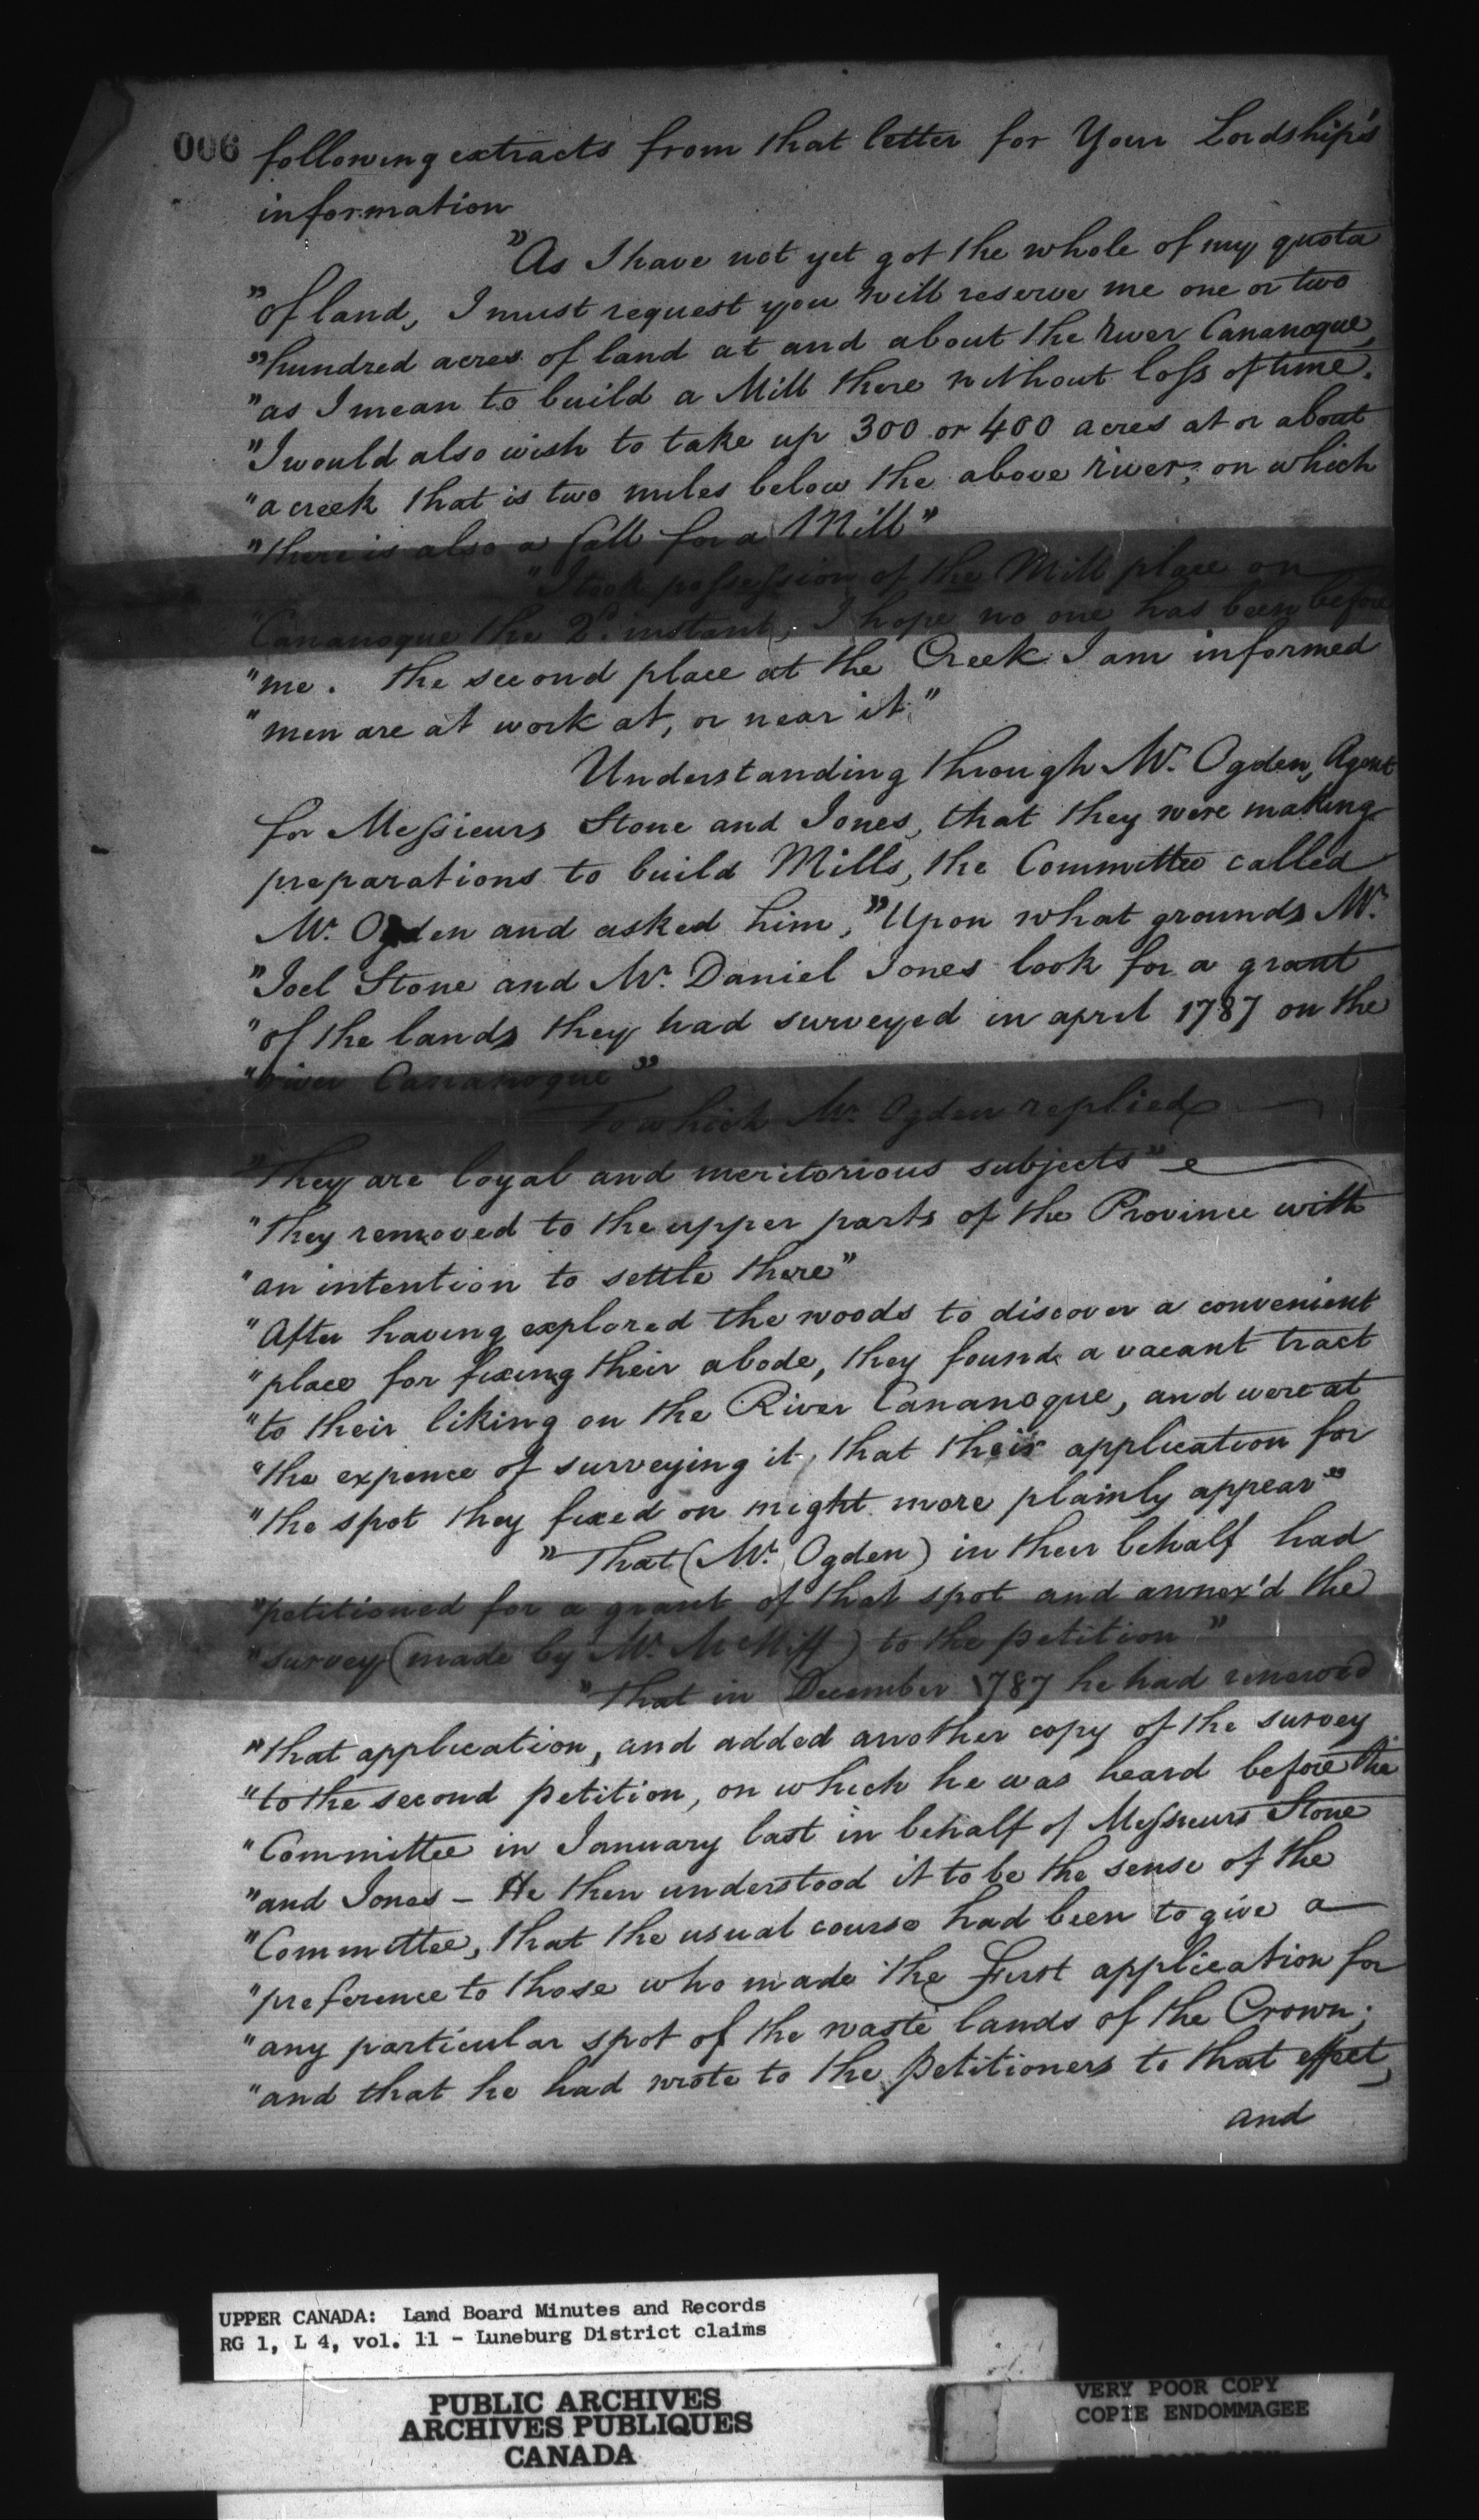 006
following extracts from that letter for Your Lordship's
information
"As I have not yet got the whole of my quota
"of land, I must request you will reserve me one or two
"hundred acres of land at and about the river Cananoque,
"as I mean to build a Mill there without loſs of time.
"I would also wish to take up 300 or 400 acres at or about
"a creek that is two miles below the above river, on which
"there is also a fall for a Mill"
"I took poſseſsion of the Mill place on
"Cananoque the 2d. instant, I hope no one has been before
"me. the second place at the Creek I am informed
"men are at work at, or near it."
Understanding through Mr. Ogden, Agent
for Meſsieurs Stone and Jones, that they were making
preparations to build Mills, the Committee called
Mr. Ogden and asked him, "Upon what grounds Mr.
"Joel Stone and Mr. Daniel Jones look for a grant
"of the lands they had surveyed in april 1787 on the
"river Cananoque"
To which Mr. Ogden replied
"They are loyal and meritorious subjects"
"they removed to the upper parts of the Province with
"an intention to settle there"
"After having explored the woods to discover a convenient
"place for fixing their abode, they found a vacant tract
"to their liking on the River Cananoque, and were at
"the expence of surveying it, that their application for
"the spot they fixed on might more plainly appear"
"That (Mr. Ogden) in their behalf had
"petitioned for a grant of that spot and annex'd the
"survey (made by Mr. McNiff) to the petition"
"That in December 1787 he had renewed
"that application, and added another copy of the survey
"to the second petition, on which he was heard before the
"Committee in January last in behalf of Meſsieurs Stone
"and Jones – He then understood it to be the sense of the
"Committee, that the usual course had been to give a
"preference to those who made the First application for
"any particular spot of the waste lands of the Crown;
"and that he had wrote to the Petitioners to that effect,
and
UPPER CANADA: Land Board Minutes and Records
RG 1, L 4, vol. 11 - Luneburg District claims
PUBLIC ARCHIVES
ARCHIVES PUBLIQUES
CANADA
VERY POOR COPY
COPIE ENDOMMAGEE